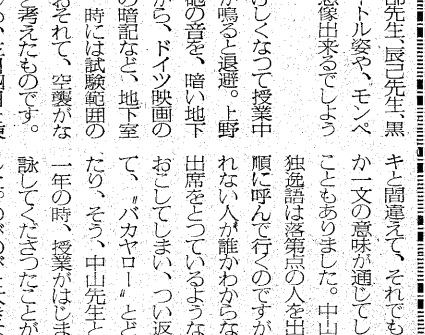 部先生、辰己先生、黒
トル姿や、モンペ
想像出来るでしよう
げしくなつて授業中
が鳴ると退避。上野
砲の音を、暗い地下
から、ドイツ映画の
の暗記など、地下室
時には試験範囲の
おそれて、空襲がな
と考えたものです。
キと間違えて、それでも
か一文の意味が通じてし
こともありました。中山
独逸語は落第点の人を出
順に呼んで行くのですが
れない人が誰かわからな
出席をとつているような
おこしてしまい、つい返
て、〃バカヤロー〃とど
たり、そう、中山先生と
一年の時、授業がはじま
詠してくださつたことが